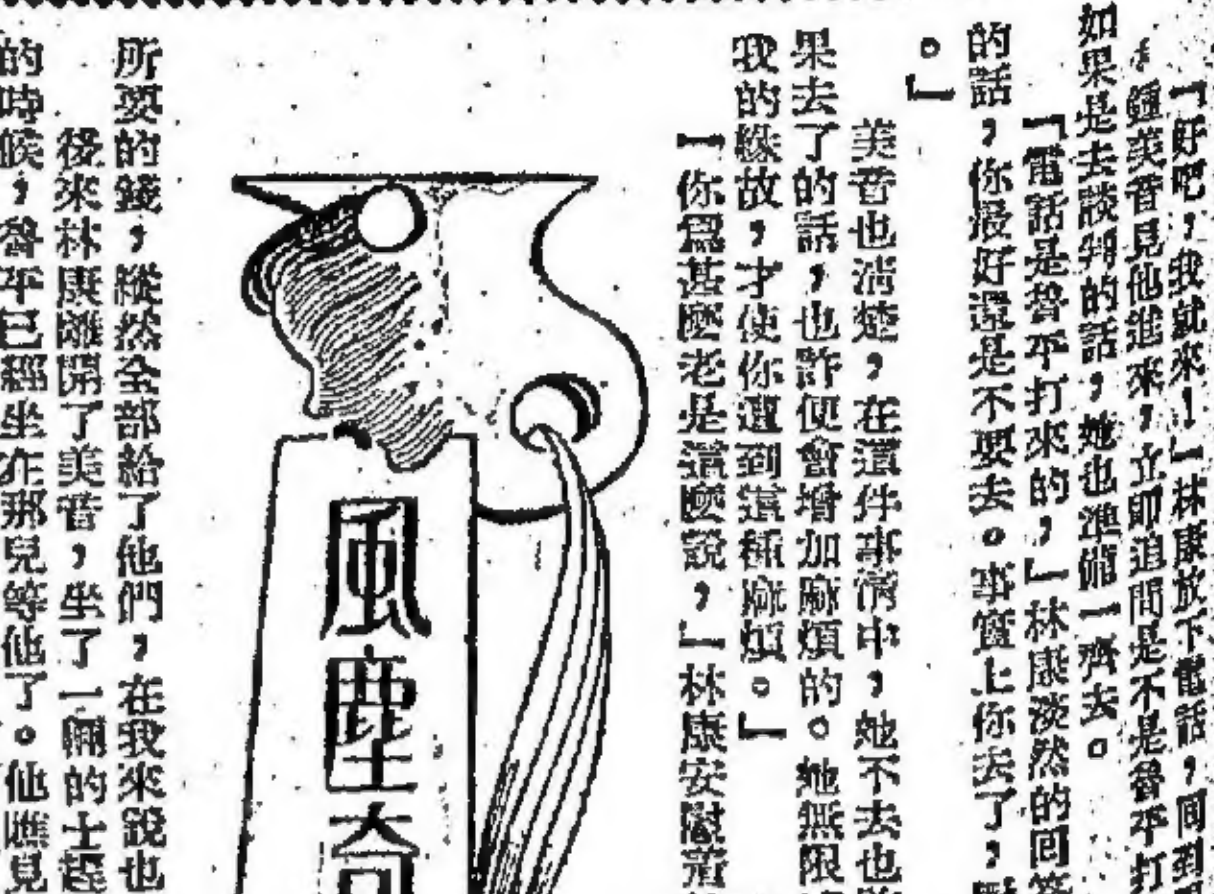 「好吧，我就來！」林康放下電話，回到
鍾美音見他進來，立即追問是不是魯平打
如果是去談判的話，她也準備一齊去。
「電話是魯平打來的，」林康淡然的回答
的話，你最好還是不要去。事實上你去了，
。」
美音也清楚，在這件事情中，她不去也
果去了的話，也許便會增加麻煩的。她無限
我的緣故，才使你遭到這種麻煩。」
「你爲甚麼老是這麼說，」林康安慰着
風塵奇
所要的錢，縱然全部給了他們，在我來說也
後來林康離開了美音，坐了一輛的士趕
的時候，魯平已經坐在那兒等他了。他瞧見